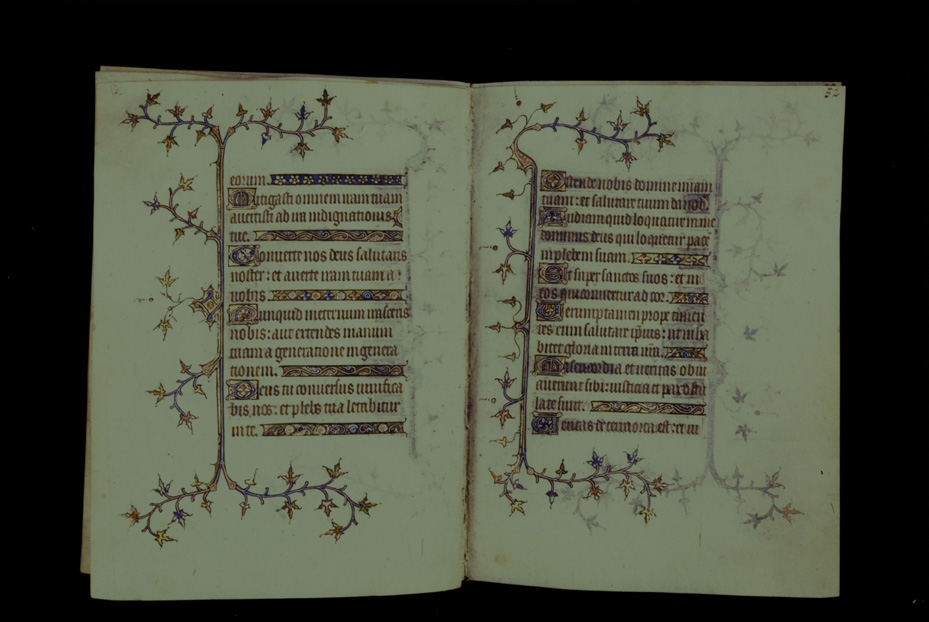 eorum.
Mitigasti omnem iram tuam
auertisti ab ira indignationis
tue.
Conuerte nos deus salutaris
noster: et auerte iram tuam a
nobis.
Nunquid in eternum irasceris
nobis: aut extendes iram
tuam a generatione in genera
tionem.
Deus tu conuersus uiuifica
bis nos: et plebs tua letabitur
in te.
32
Ostende nobis domine miam
tuam: et salutare tuum da nob.
Audiam quid loquatur in me
dominus deus qui loquetur pace
in plebem suam.
Et super sanctos suos: et in
eos qui conuertuntur ad cor.
Uerumptamen prope timen
tes eum salutare ipsius: ut inha
bitet gloria in terra nra.
Misericordia et ueritas obui
auerunt sibi: iusticia et pax oscu
late sunt.
Ueritas de terra orta est: et iu